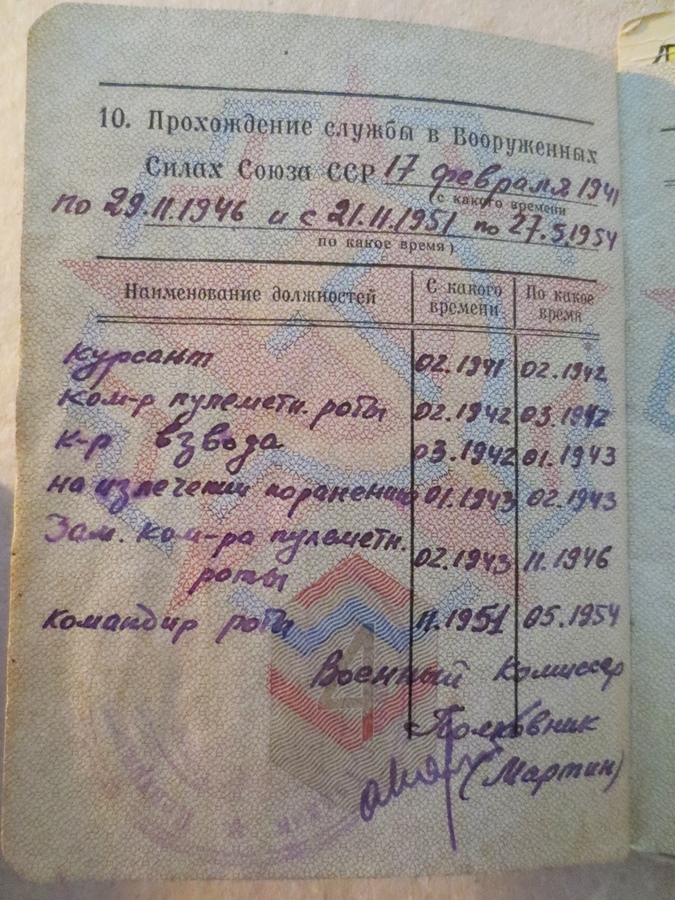 10. Прохождение службы в Вооруженных
Силах Союза ССР 17 февраля 1941
(с какого времени
по 29.11.1946 и с 21.11.1951 по 27.5.1954
по какое время)
Наименование должностей С какого времени По какое время
курсант 02.1941 02.1942
ком-р пулеметн. роты 02.1942 03.1942
к-р взвода 03.1942 01.1943
на излечении по ранению 01.1943 02.1943
Зам. ком-ра пулеметн. роты 02.1943 11.1946
командир роты 11.1951 05.1954
4
Военный Комиссар
Полковник
(Мартин)